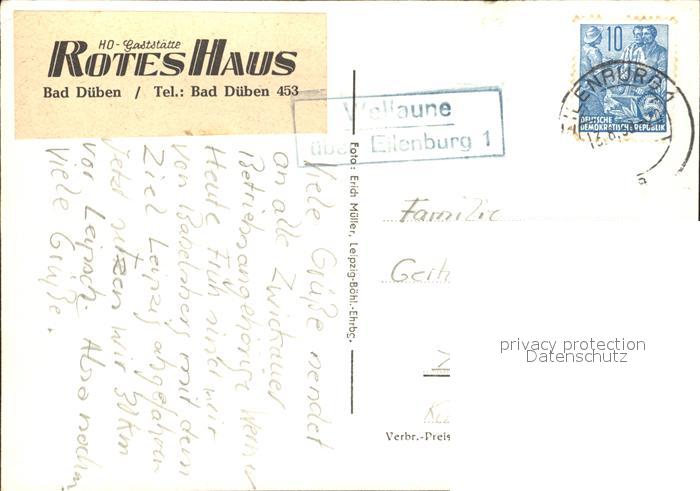 HO-Gaststätte
ROTES HAUS
Bad Düben / Tel.: Bad Düben 453
Wellaune
über Eilenburg 1
10
DEUTSCHE
DEMOKRATISCHE REPUBLIK
EILENBURG
Viele Grüße sendet
an alle Zwickauer
Betriebsangehörige Werner
Heute Früh sind wir
von Babelsberg mit dem
Ziel Leipzig abgefahren
Jetzt sitzen wir 30 km
vor Leipzig. Also nochm
Viele Grüße.
Foto: Erich Müller, Leipzig-Böhl.-Ehrbg.
Familie
Gerh
privacy protection
Datenschutz
Verbr.-Preis